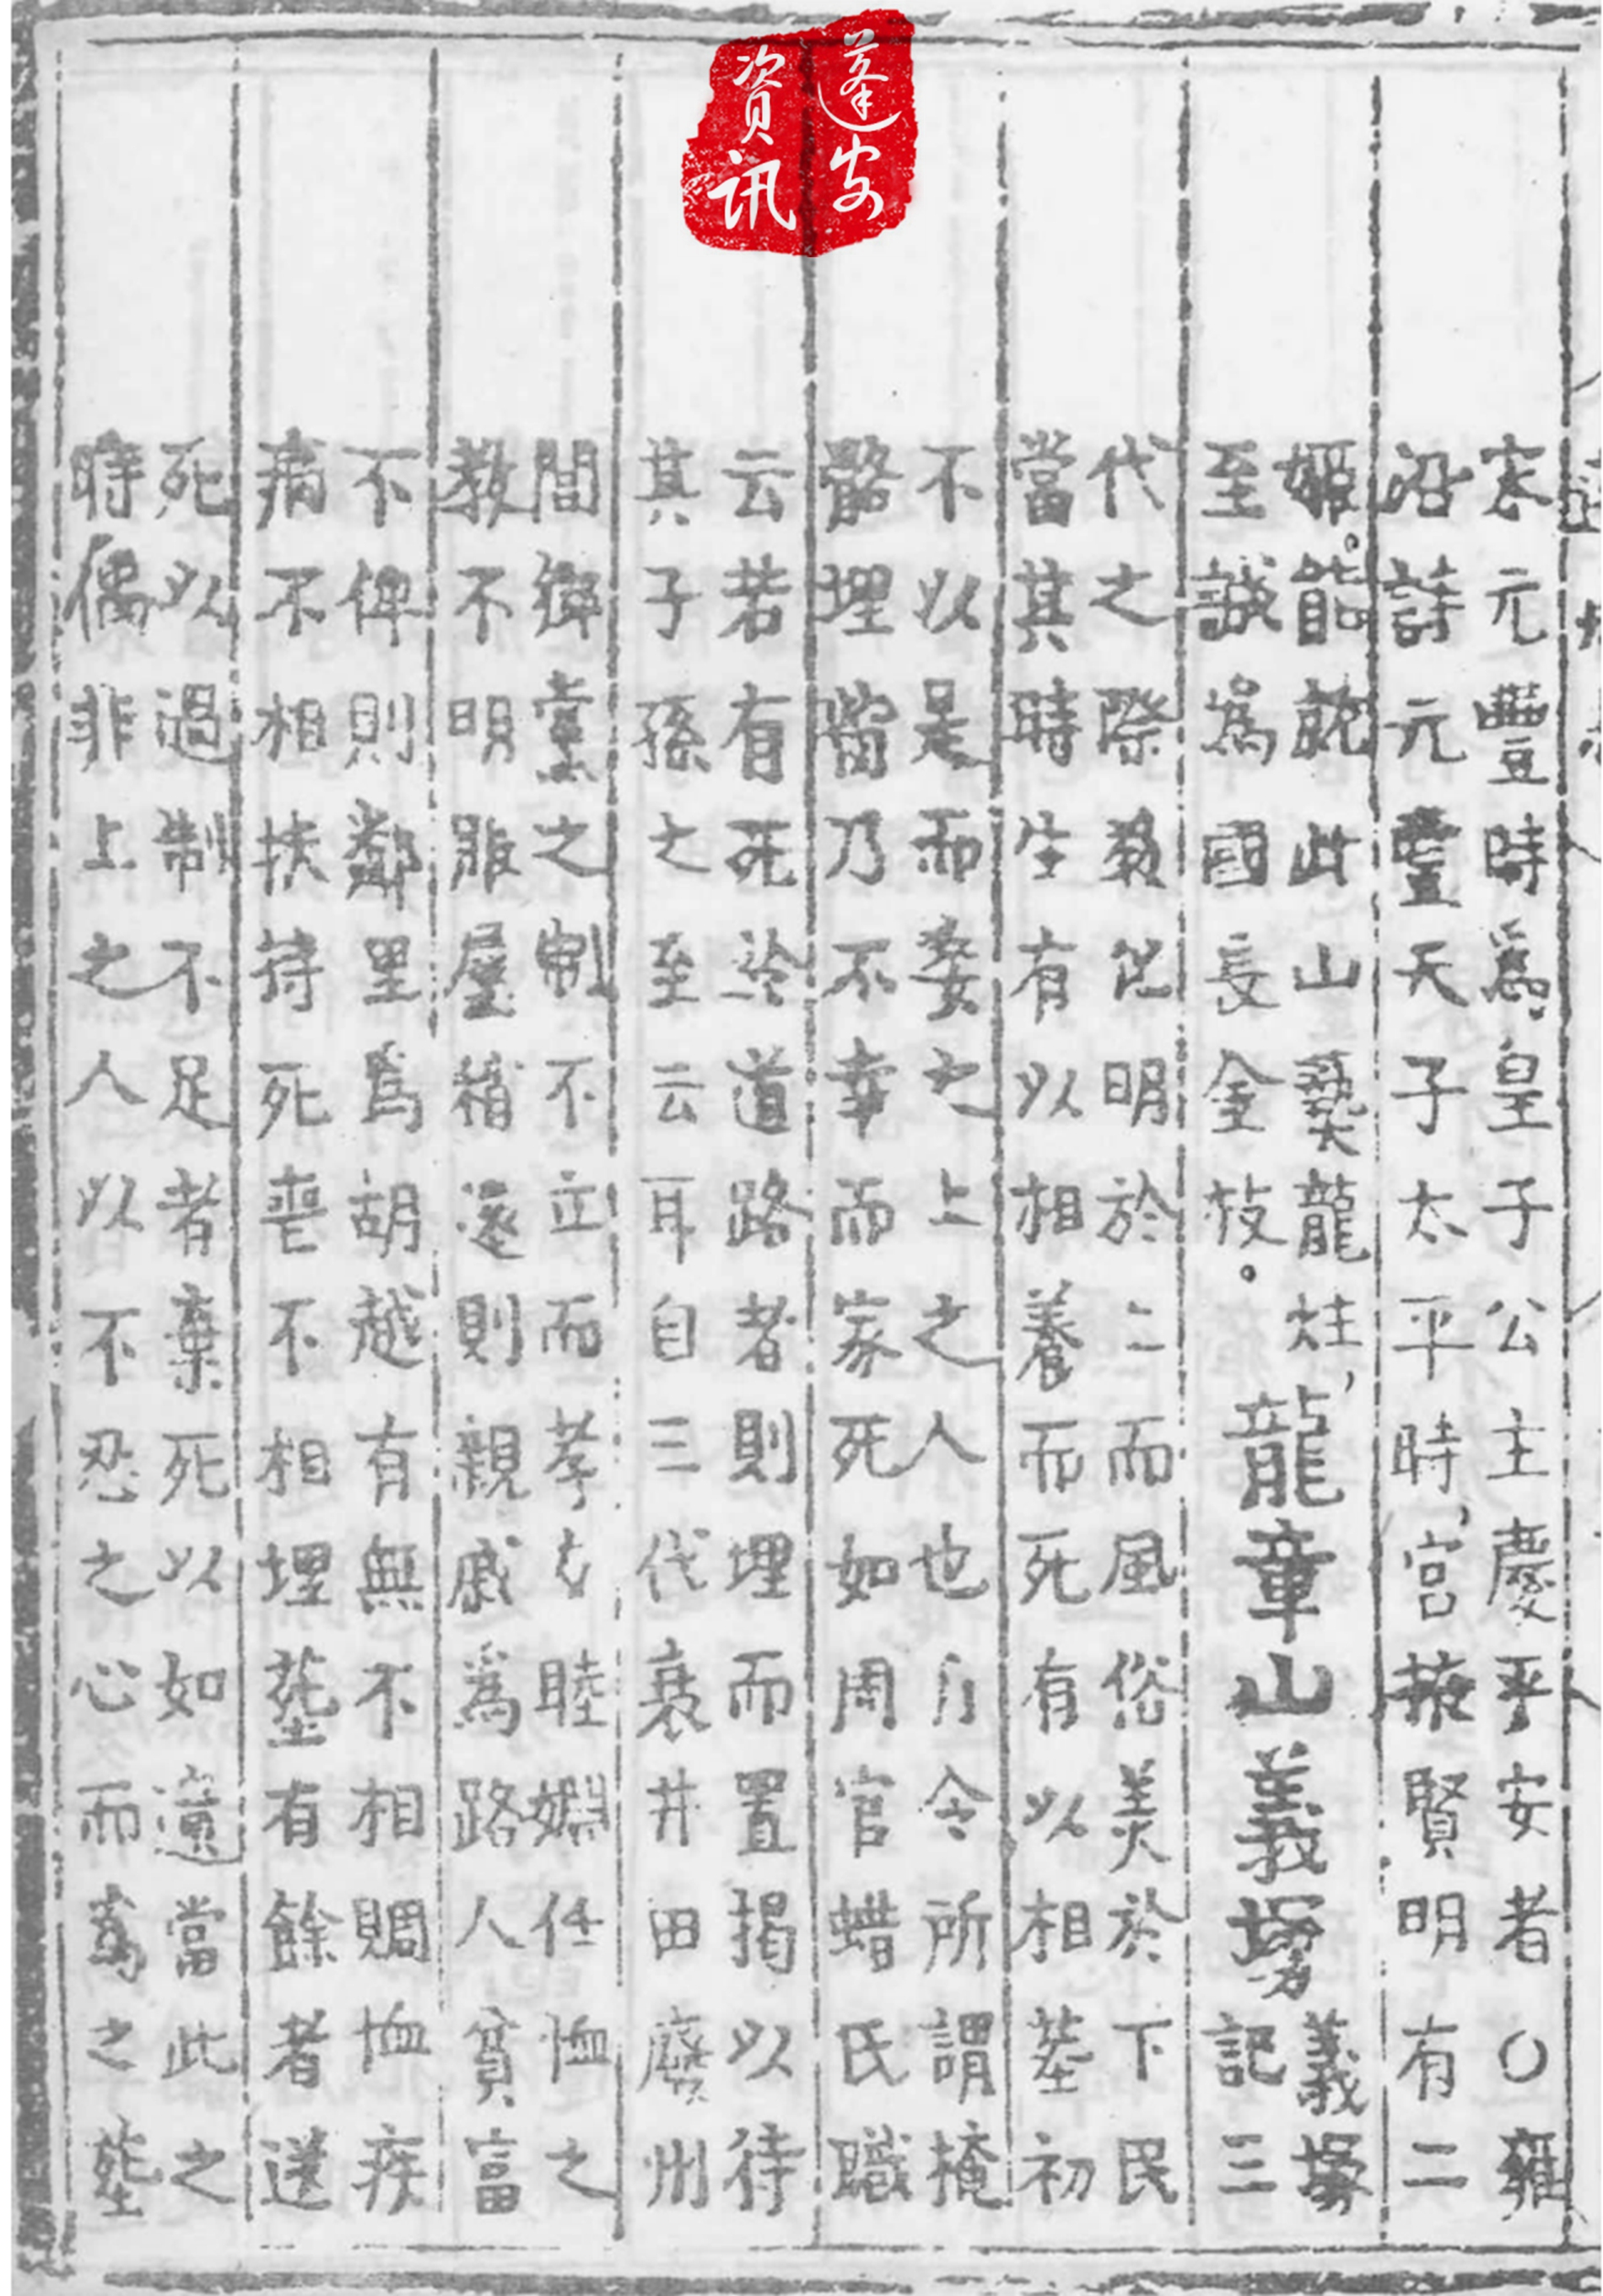 蓬安
資訊
宋元豐時為皇子公主慶乎安者〇雍
沿詩元豐天子太平時宮掖賢明有二
姬能説此山爇龍炷
至誠為國長金枝
龍章山義塚
義塚
記三
代之際教化明於二而風俗美於下民
當其時生有以相養而死有以相塟初
不以是而委之上之人也月令所謂掩
骼埋胔乃不幸而家死如周官蜡氏職
云若有死於道路者則埋而置揭以待
其子孫之至云耳自三代衰井田廢州
閭鄉黨之制不立而孝友睦婣任恤之
教不明服屋稍逺則親戚為路人貧富
不俾則鄰里為胡越有無不相賙恤疾
病不相扶持死喪不相埋塟有餘者送
死以過制不足者棄死以如遺當此之
時偶非上之人以不忍之心而為之塟